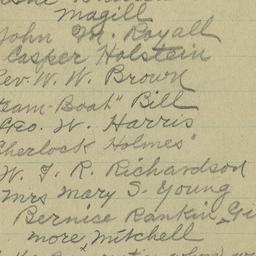 Magill
John M. Royall
Casper Holstein
Rev. W. W. Brown
"Steam-Boat" Bill
Geo. W. Harris
"Sherlock Holmes"
W. J. R. Richardson
Mrs Mary S. Young
Bernice Rankin, Gi
more, Mitchell